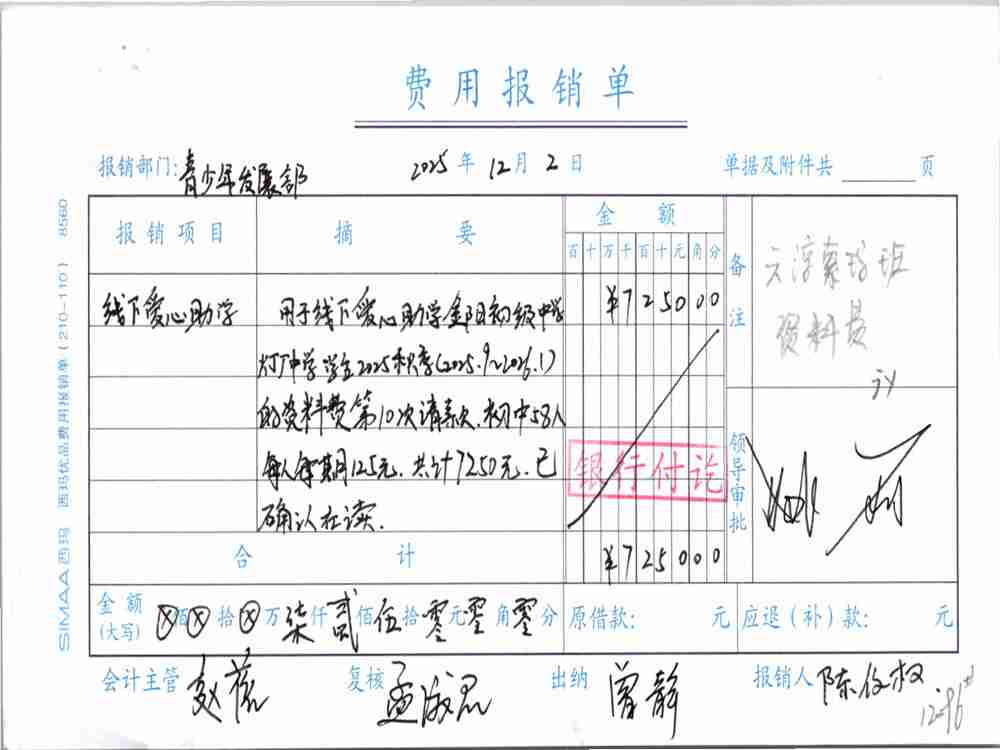 费用报销单
报销部门:青少年发展部 2025年12月2日 单据及附件共 页
报销项目 摘要 金额 备注
百十万千百十元角分
线下爱心助学 用于线下爱心助学金阳初级中学 ¥725000
灯厂中学学生2025秋季(2025.9~2026.1)
的资料费第10次请款.初中58人
每人每期125元.共计7250元.已
确认在读.
班
资料费
银行付讫
领导审批
合计 ¥725000
金额(大写) ⊗佰⊗拾⊗万柒仟贰佰伍拾零元零角零分 原借款: 元 应退(补)款: 元
会计主管 赵 复核 孟淑君 出纳 曾静 报销人 陈俊权
12-96#
SIMAA西玛 西玛优品费用报销单(210-110) 8560